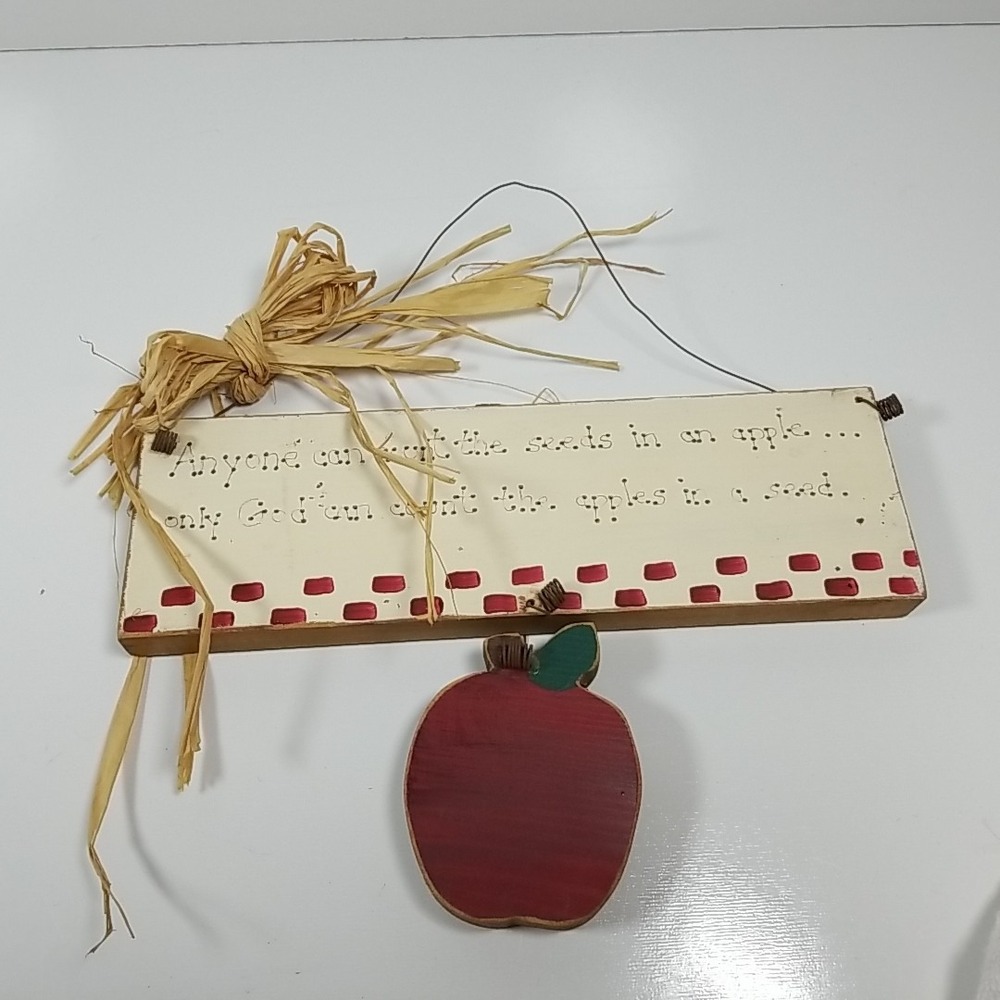 Anyone can count the seeds in an apple ...
only God can count the apples in a seed.